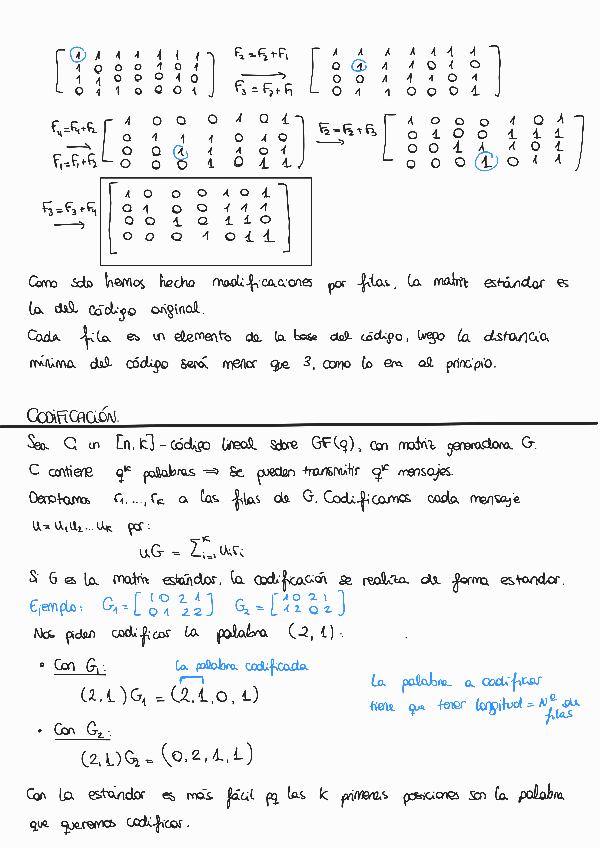 [1 1 1 1 1 1 1 / 1 0 0 0 1 0 1 / 1 1 0 0 0 1 0 / 0 1 1 0 0 0 1] F2=F2+F1 → F3=F3+F1 [1 1 1 1 1 1 1 / 0 1 1 1 0 1 0 / 0 0 1 1 1 0 1 / 0 1 1 0 0 0 1]
F4=F4+F2 → F1=F1+F2 [1 0 0 0 1 0 1 / 0 1 1 1 0 1 0 / 0 0 1 1 1 0 1 / 0 0 0 1 0 1 1] F2=F2+F3 → [1 0 0 0 1 0 1 / 0 1 0 0 1 1 1 / 0 0 1 1 1 0 1 / 0 0 0 1 0 1 1]
F3=F3+F4 → [1 0 0 0 1 0 1 / 0 1 0 0 1 1 1 / 0 0 1 0 1 1 0 / 0 0 0 1 0 1 1]
Como solo hemos hecho modificaciones por filas, la matriz estándar es
la del código original.
Cada fila es un elemento de la base del código, luego la distancia
mínima del código será menor que 3, como lo era al principio.
CODIFICACIÓN.
Sea C un [n,k]-código lineal sobre GF(q), con matriz generadora G.
C contiene q^k palabras ⇒ se pueden transmitir q^k mensajes.
Denotamos r1,...,rk a las filas de G. Codificamos cada mensaje
u=u1u2...uk por:
uG = Σ_{i=1}^k uiri
Si G es la matriz estándar, la codificación se realiza de forma estandar.
Ejemplo: G1=[1 0 2 1 / 0 1 2 2] G2=[1 0 2 1 / 1 2 0 2]
Nos piden codificar la palabra (2,1):
• Con G1: la palabra codificada
(2,1)G1 = (2,1,0,1)
la palabra a codificar
tiene que tener longitud = Nº de
filas
• Con G2:
(2,1)G2 = (0,2,1,1)
Con la estándar es más fácil pq las k primeras posiciones son la palabra
que queremos codificar.